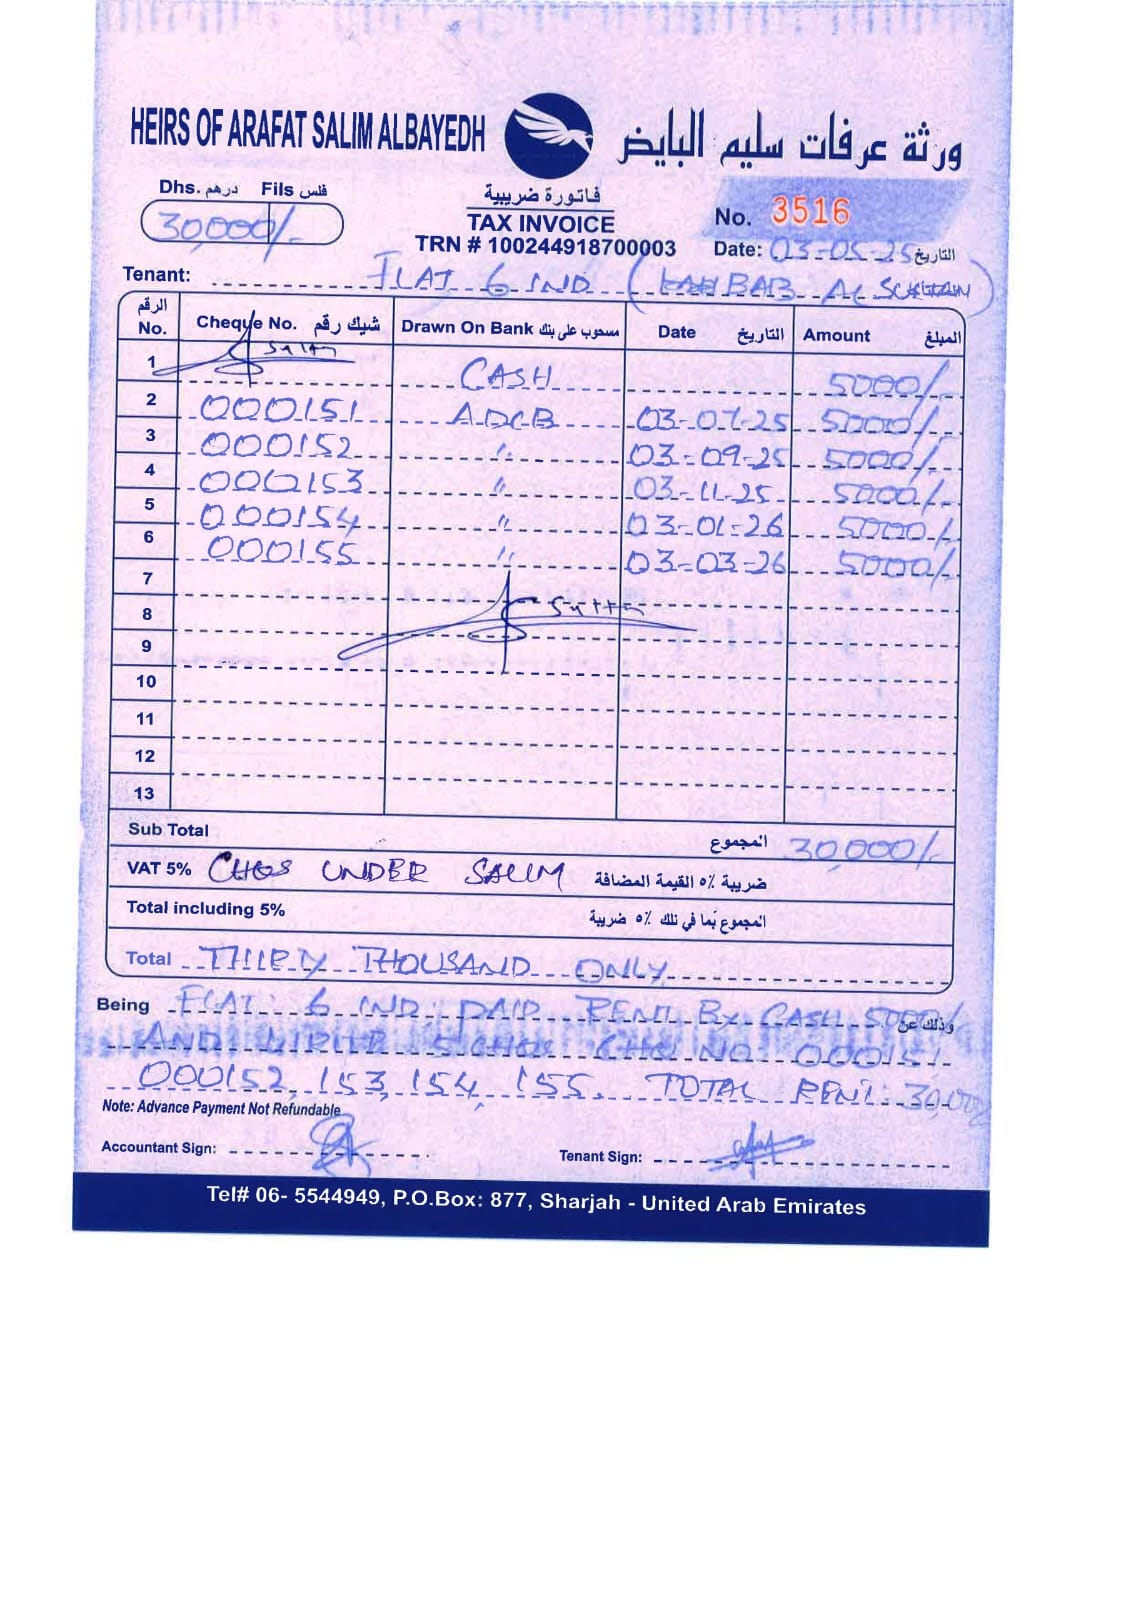 HEIRS OF ARAFAT SALIM ALBAYEDH ورثة عرفات سليم البايض
Dhs. درهم Fils فلس
30,000/-
فاتورة ضريبية
TAX INVOICE
TRN # 100244918700003
No. 3516
Date: 03-05-25 التاريخ
Tenant: FLAT 6 IND ( BAB AL )
الرقم No. Cheque No. شيك رقم Drawn On Bank مسحوب على بنك Date التاريخ Amount المبلغ
1 CASH 5000/-
2 000151 ADCB 03-07-25 5000/-
3 000152 " 03-09-25 5000/-
4 000153 " 03-11-25 5000/-
5 000154 " 03-01-26 5000/-
6 000155 " 03-03-26 5000/-
7
8
9
10
11
12
13
Sub Total المجموع 30,000/-
VAT 5% CHQS UNDER SALIM ضريبة ٥% القيمة المضافة
Total including 5% المجموع بما في تلك ٥% ضريبة
Total THIRTY THOUSAND ONLY
Being FLAT: 6 IND PAID RENT BY CASH 5000/ وذلك عن
AND 5 CHQS CHQ NO 000151
000152, 153, 154, 155. TOTAL RENT: 30,000
Note: Advance Payment Not Refundable
Accountant Sign: Tenant Sign:
Tel# 06- 5544949, P.O.Box: 877, Sharjah - United Arab Emirates